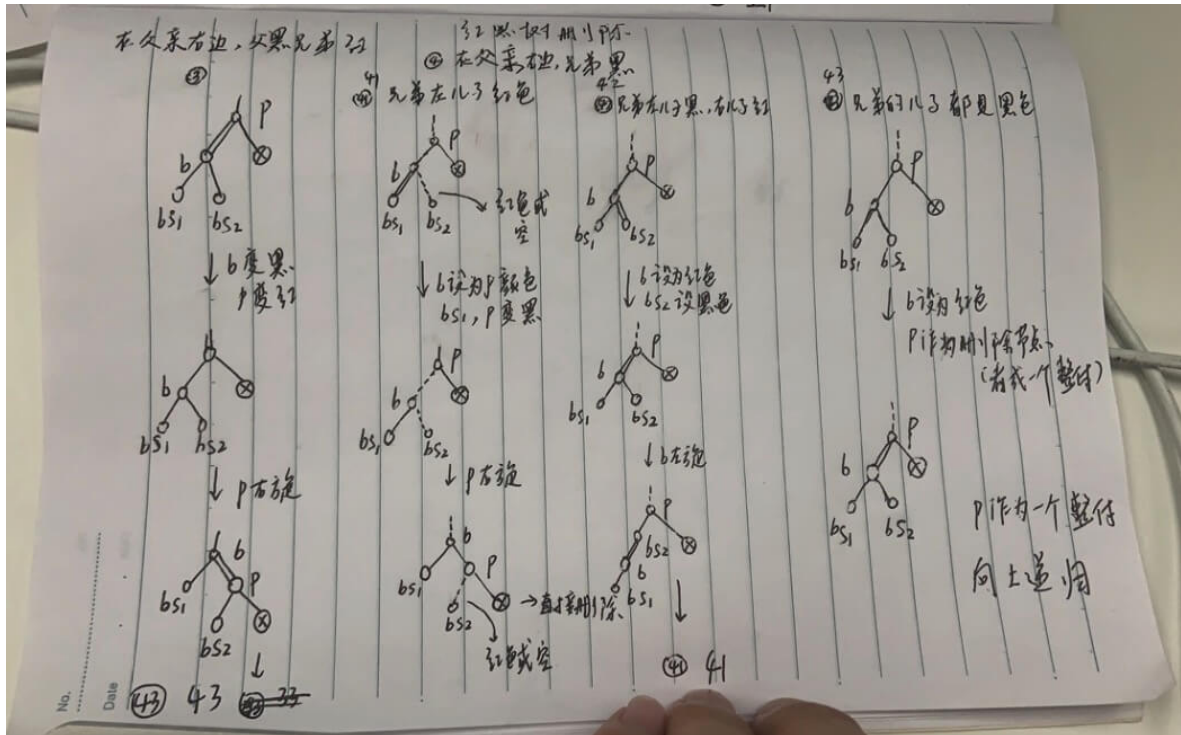 红黑树删除
在父亲右边,父黑兄弟红
③
p
b
bs₁
bs₂
↓ b变黑
p变红
b
bs₁
bs₂
↓ p右旋
b
p
bs₁
bs₂
↓
㊸ 43
④ 在父亲右边,兄弟黑
41
兄弟左儿子红色
p
b
bs₁
bs₂
红色或
空
↓ b设为p颜色
bs₁,p变黑
p
b
bs₁
bs₂
↓ p右旋
b
p
bs₁
bs₂
→直接删除
红色或空
42
兄弟左儿子黑,右儿子红
p
b
bs₁
bs₂
↓ b设为红色
bs₂设黑色
p
b
bs₁
bs₂
↓ b左旋
p
bs₂
b
bs₁
↓
㊶ 41
43
兄弟的儿子都是黑色
p
b
bs₁
bs₂
↓ b设为红色
p作为删除节点
(看成一个整体)
p
b
bs₁
bs₂
p作为一个整体
向上递归
No.
Date